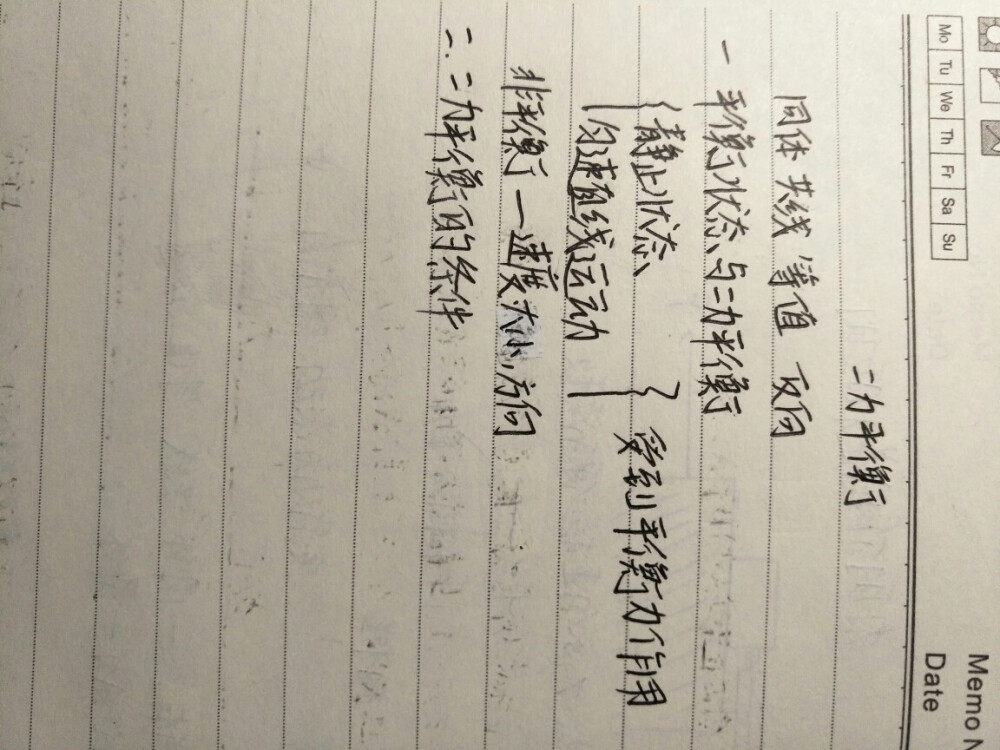 Memo N
Date
Mo Tu We Th Fr Sa Su
二力平衡
同体 共线 等值 反向
一 平衡状态与二力平衡
{静止状态
匀速直线运动} 受到平衡力作用
非平衡 — 速度大小,方向
二. 二力平衡的条件